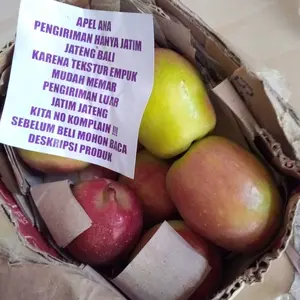 APEL ANA
PENGIRIMAN HANYA JATIM
JATENG BALI
KARENA TEKSTUR EMPUK
MUDAH MEMAR
PENGIRIMAN LUAR
JATIM JATENG
KITA NO KOMPLAIN !!!
SEBELUM BELI MOHON BACA
DESKRIPSI PRODUK